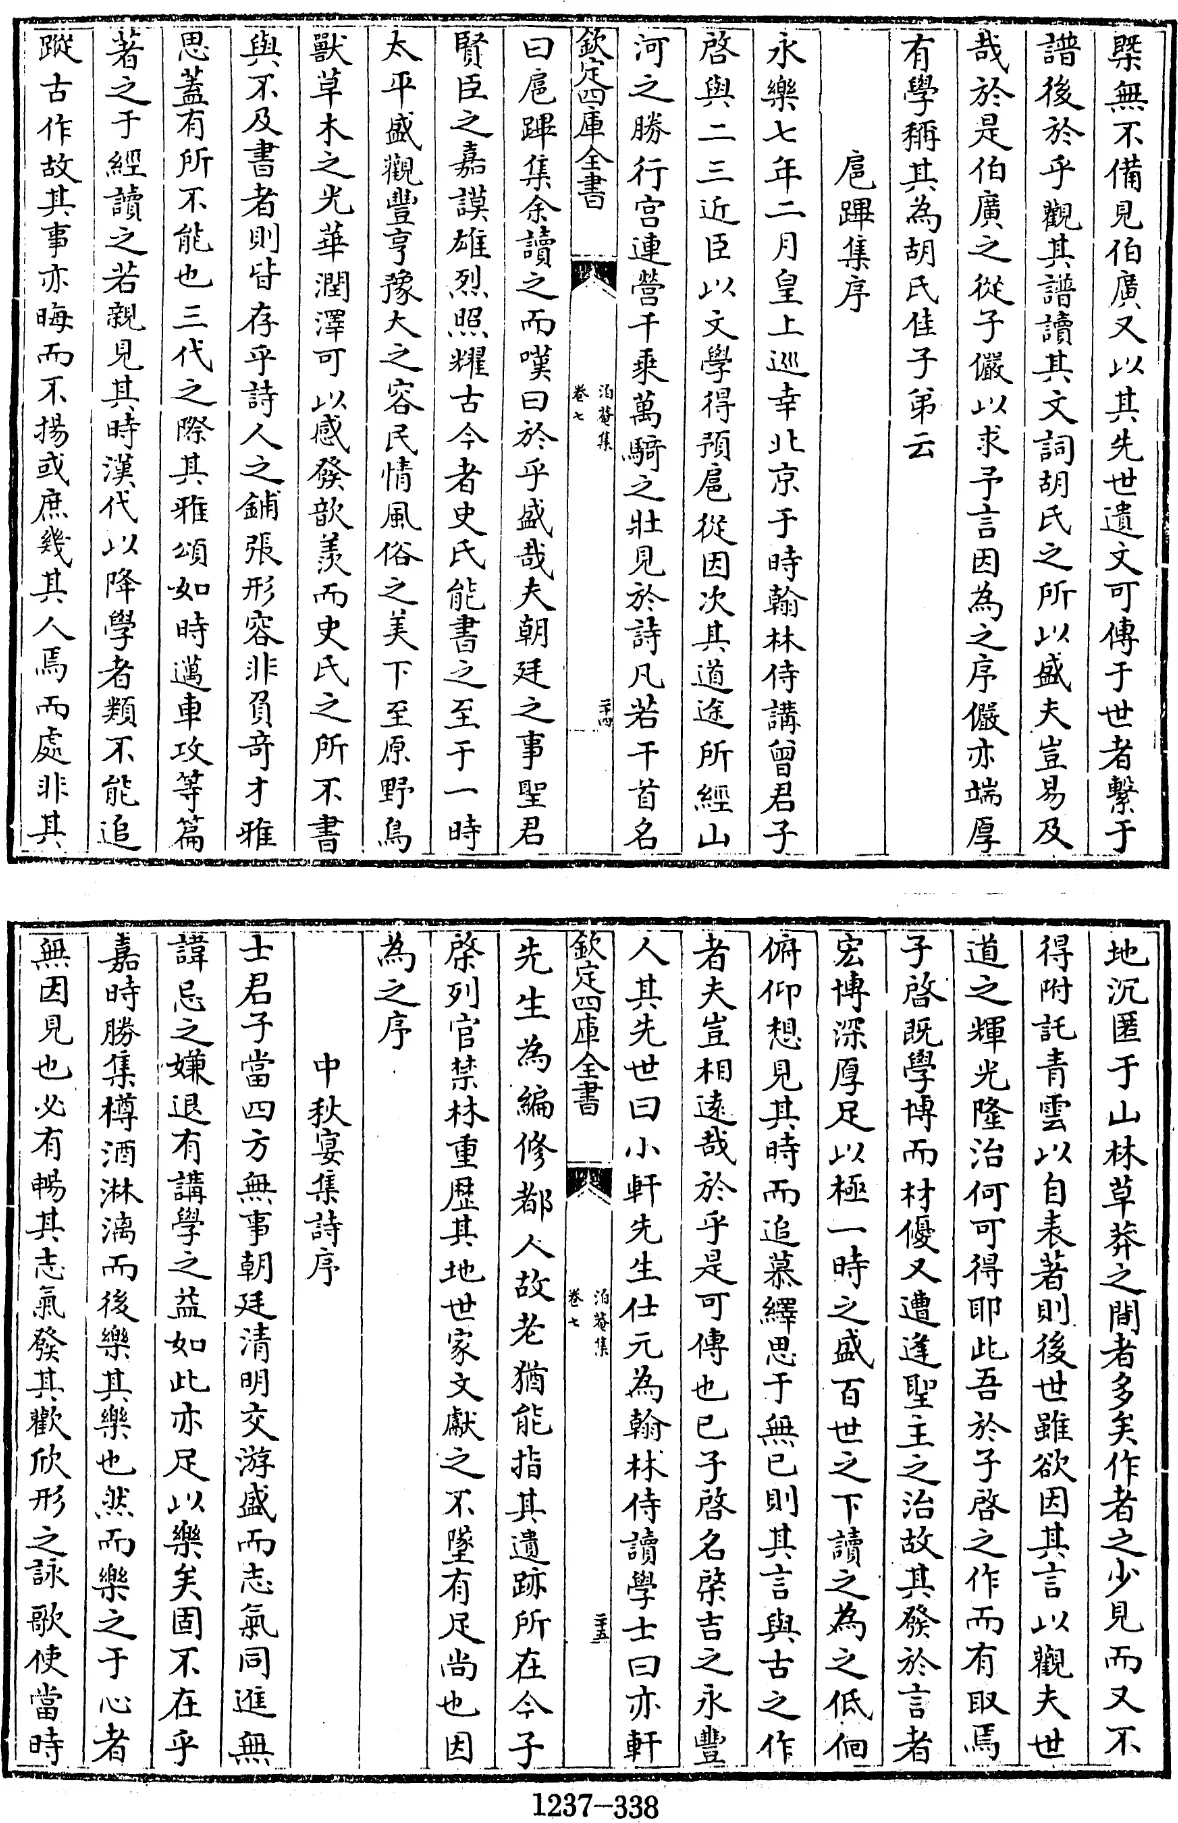 槩無不備見伯廣又以其先世遺文可傳于世者繫于
譜後於乎觀其譜讀其文詞胡氏之所以盛夫豈易及
哉於是伯廣之從子儼以求予言因為之序儼亦端厚
有學稱其為胡氏佳子弟云
扈蹕集序
永樂七年二月皇上巡幸北京于時翰林侍講曾君子
啓與二三近臣以文學得預扈從因次其道途所經山
河之勝行宫連營千乘萬騎之壯見於詩凡若干首名
欽定四庫全書
泊菴集
卷七
二十四
曰扈蹕集余讀之而嘆曰於乎盛哉夫朝廷之事聖君
賢臣之嘉謨雄烈照耀古今者史氏能書之至于一時
太平盛觀豐亨豫大之容民情風俗之美下至原野鳥
獸草木之光華潤澤可以感發歆羨而史氏之所不書
與不及書者則皆存乎詩人之鋪張形容非負竒才雅
思蓋有所不能也三代之際其雅頌如時邁車攻等篇
著之于經讀之若親見其時漢代以降學者類不能追
蹤古作故其事亦晦而不揚或庶幾其人焉而處非其
地沉匿于山林草莽之間者多矣作者之少見而又不
得附託青雲以自表著則後世雖欲因其言以觀夫世
道之輝光隆治何可得耶此吾於子啓之作而有取焉
子啓既學博而材優又遭逢聖主之治故其發於言者
宏博深厚足以極一時之盛百世之下讀之為之低佪
俯仰想見其時而追慕繹思于無已則其言與古之作
者夫豈相遠哉於乎是可傳也已子啓名棨吉之永豐
人其先世曰小軒先生仕元為翰林侍讀學士曰亦軒
欽定四庫全書
泊菴集
卷七
二十五
先生為編修都人故老猶能指其遺跡所在今子
棨列官禁林重歷其地世家文獻之不墜有足尚也因
為之序
中秋宴集詩序
士君子當四方無事朝廷清明交游盛而志氣同進無
諱忌之嫌退有講學之益如此亦足以樂矣固不在乎
嘉時勝集樽酒淋漓而後樂其樂也然而樂之于心者
無因見也必有暢其志氣發其歡欣形之詠歌使當時
1237-338